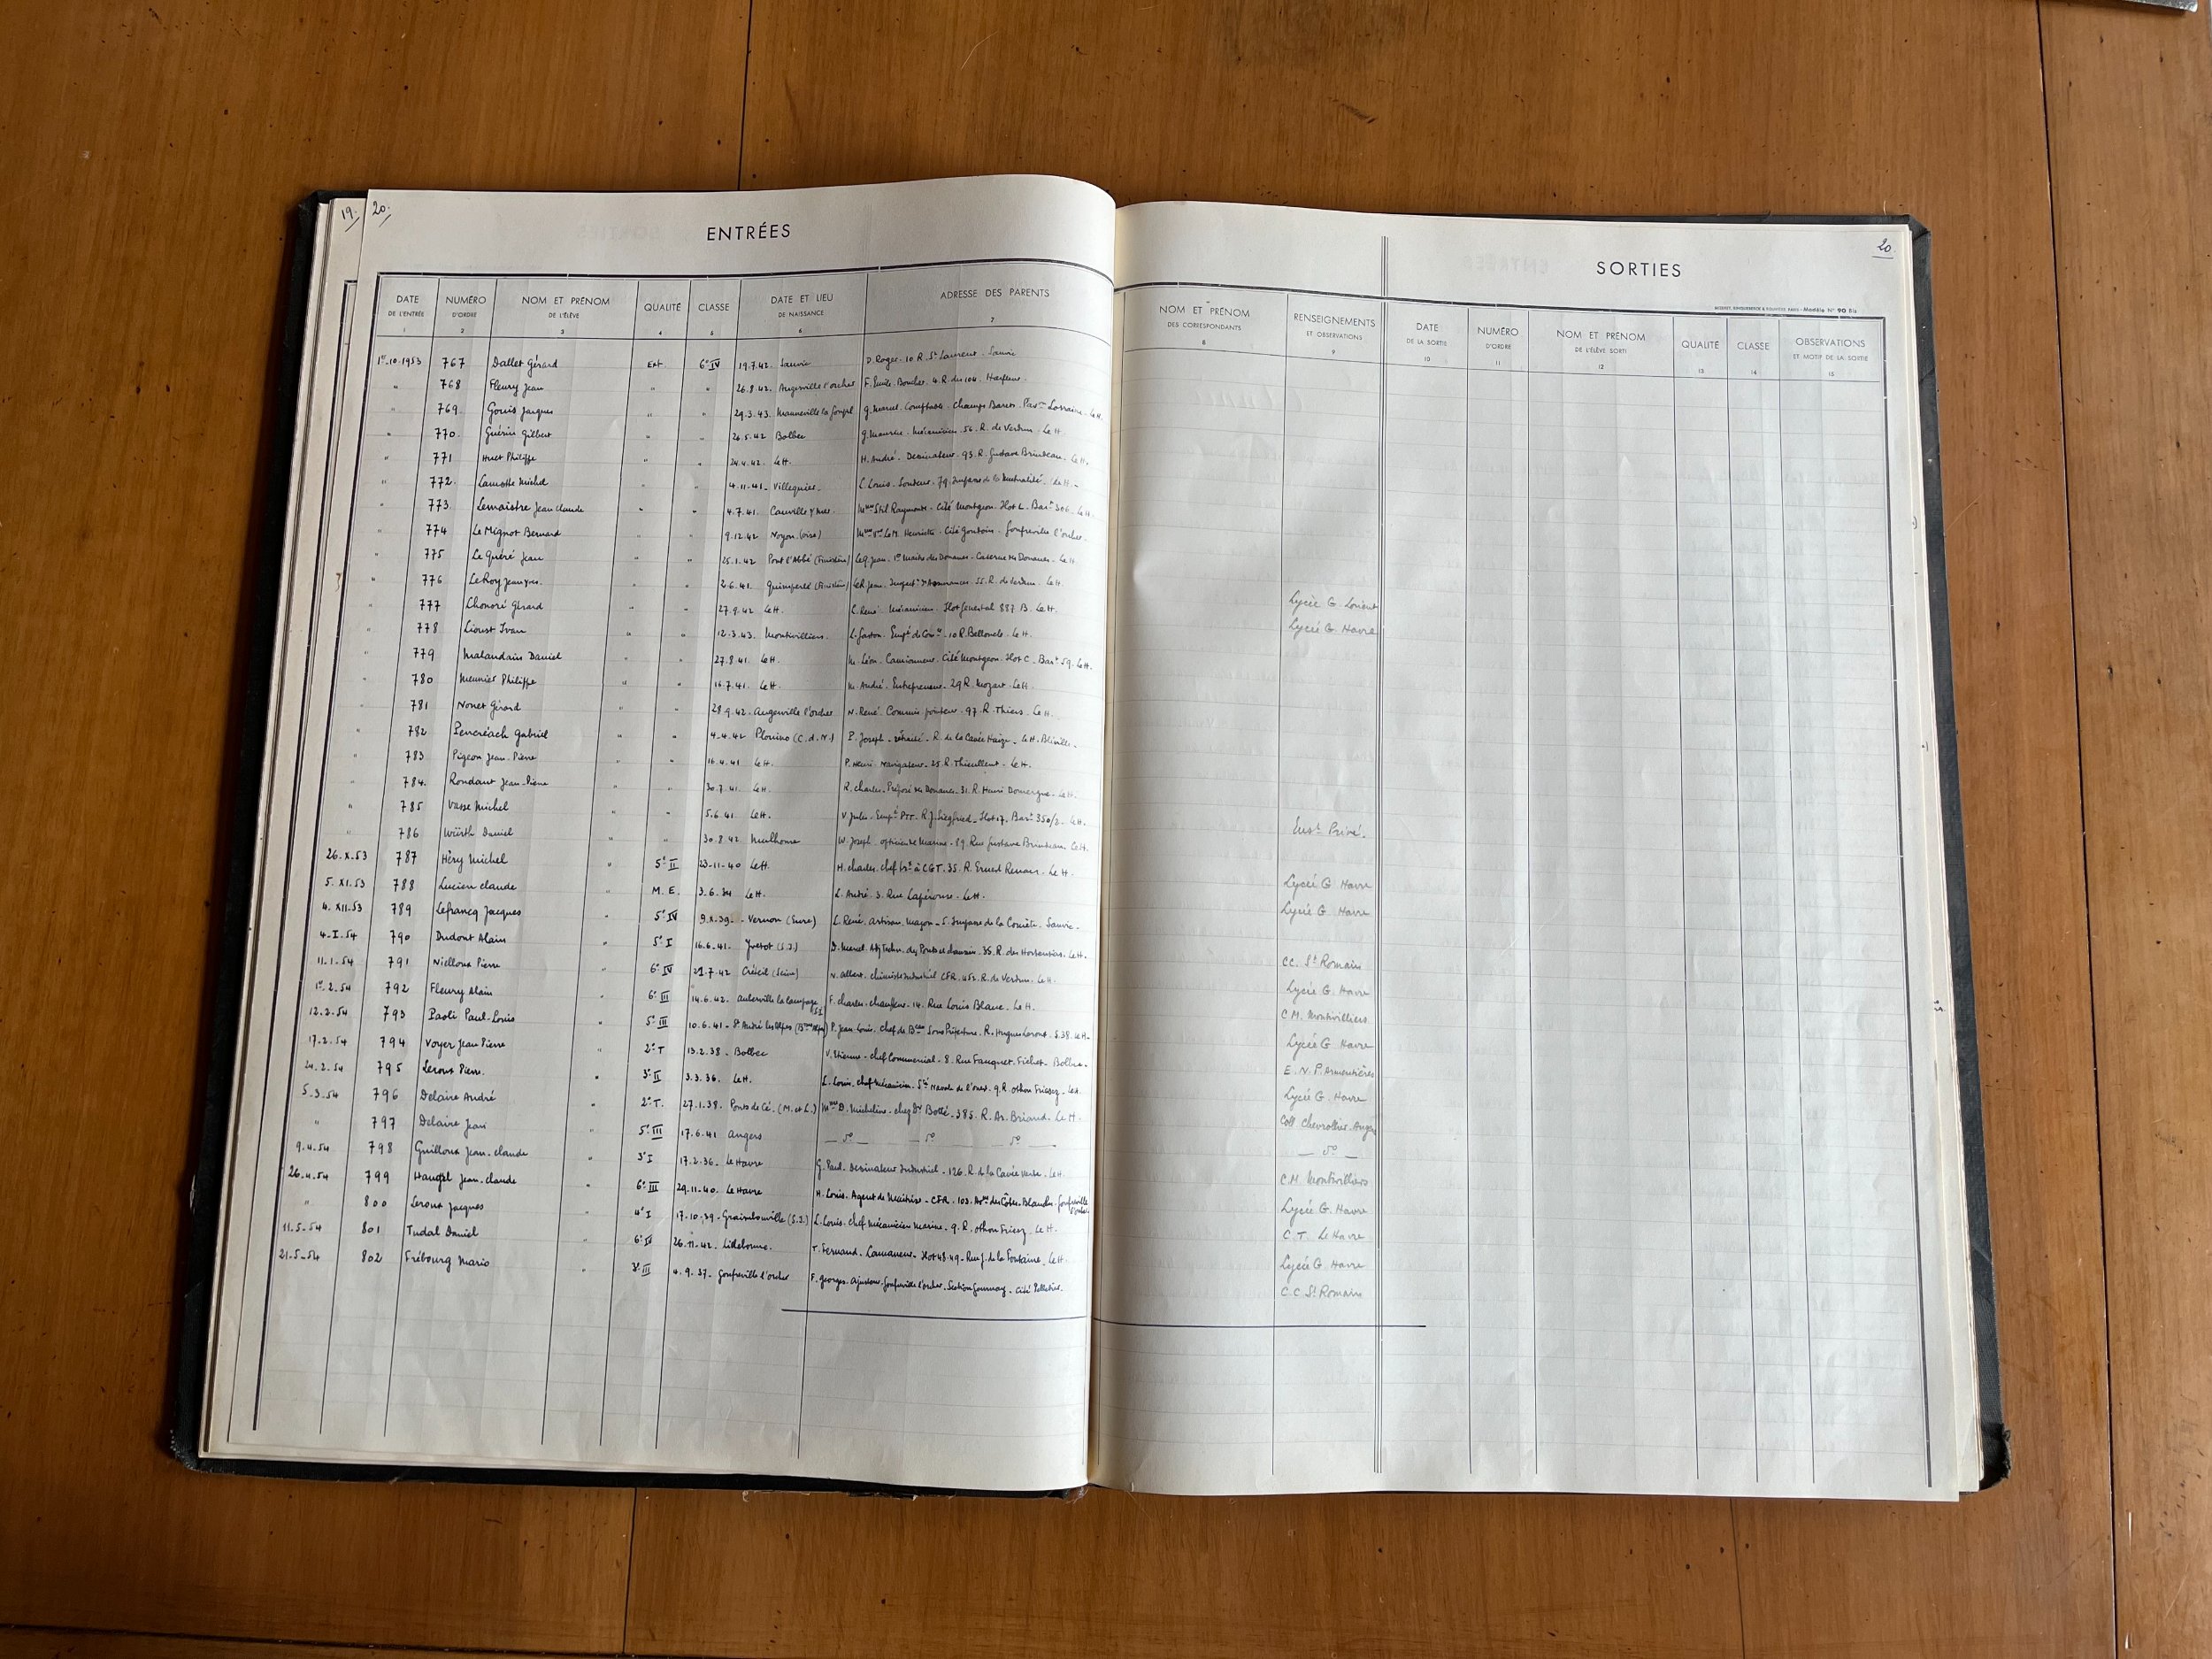 19.
20.
ENTRÉES
DATE DE L'ENTRÉE 1 NUMÉRO D'ORDRE 2 NOM ET PRÉNOM DE L'ÉLÈVE 3 QUALITÉ 4 CLASSE 5 DATE ET LIEU DE NAISSANCE 6 ADRESSE DES PARENTS 7
1er-10-1953 767 Dallet Gérard Ext 6e IV 19.7.42. Sanvic D. Roger. 10 R. St Laurent. Sanvic
" 768 Fleury Jean " " 26.8.42. Angerville l'orcher F. Emile. Boucher. 4. R. du 104. Harfleur.
" 769. Gouis Jacques " " 29.3.43. Manneville la goupil G. Marcel. Comptable. Champs Barets. Lorraine. Le H.
" 770. Guérin Gilbert " " 26.5.42 Bolbec G. Maurice. Mécanicien. 56. R. de Verdun. Le H.
" 771 Huet Philippe " " 24.4.42. Le H. H. André. Dessinateur. 93. R. Gustave Brindeau. Le H.
" 772. Lamotte Michel " " 4.11.41. Villequier. L. Louis. Soudeur. 79. Impasse de la Mutualité. Le H.
" 773. Lemaistre Jean claude " " 4.7.41. Cauville s/mer. Mme Stil Raymonde. Cité Montgeon. Ilot L. Bart 306. Le H.
" 774 Le Mignot Bernard " " 9.12.42 Noyon (oise) Mme Vve Le M. Henriette. Cité Gonfreville l'orcher.
" 775 Le Quéré Jean " " 25.1.42 Pont l'Abbé (Finistère) Le Q. Jean. 1er Maitre des Douanes. Caserne des Douanes. Le H.
" 776 Le Roy Jean Yves. " " 2.6.41. Quimperlé (Finistère) Le R. Jean. Inspect. d'Assurances. 55. R. de Verdun. Le H.
" 777 Lhonoré Gérard " " 27.9.42 Le H. L. René. Mécanicien. Ilot Genestal 887 B. Le H.
" 778 Lioust Ivan " " 12.3.43. Montivilliers. L. Gaston. Empé de Comce. 10 R. Bellonde. Le H.
" 779 Malandain Daniel " " 27.8.41. Le H. M. Léon. Camionneur. Cité Montgeon. Ilot C. Bart 59. Le H.
" 780 Meunier Philippe " " 16.7.41. Le H. M. André. Entrepreneur. 29 R. Mozart. Le H.
" 781 Nonet Gérard " " 28.9.42. Angerville l'orcher N. René. Commis pointeur. 97. R. Thiers. Le H.
" 782 Pencréach Gabriel " " 4.4.42 Plouino (C.d.N.) P. Joseph. retraité. R. de la Cavée Le H. Bléville.
" 783 Pigeon Jean-Pierre " " 16.4.41 Le H. P. Henri. Navigateur. 25. R. Thieullent. Le H.
" 784. Rondant Jean-Pierre " " 30.7.41. Le H. R. Charles. Préposé des Douanes. 31. R. Henri Domergue. Le H.
" 785 Vasse Michel " " 5.6.41. Le H. V. Jules. Empé PTT. R. J. Siegfried. Ilot 17. Bart 350/2. Le H.
" 786 Würth Daniel " " 30.8.42 Mulhouse W. Joseph. officier de Marine. 89. Rue Gustave Brindeau. Le H.
26.X.53 787 Héry Michel " 5e II 23-11-40 Le H. H. charles. chef à CGT. 35. R. Ernest Renan. Le H.
5.XI.53 788 Lucien claude " M.E. 3.6.34 Le H. L. André. 3. Rue Lapérouse. Le H.
4.XII.53 789 Lefrancq Jacques 5e IV 9.X.39. Vernon (Eure) L. René. Artisan Maçon. 5. Impasse de la Comète. Sanvic.
4-I.54 790 Dudont Alain " 5e I 16.6.41. Yvetot (S.I.) D. Marcel. Adj. Techn. des Ponts et chaussées. 35. R. des Hortensias. Le H.
11.1.54 791 Nielloux Pierre " 6e IV 21.7.42 Créteil (Seine) N. Albert. chimiste industriel CFR. R. de Verdun. Le H.
1er.2.54 792 Fleury Alain " 6e III 14.6.42. Auberville la campagne S.I. F. charles. chauffeur. 14. Rue Louis Blanc. Le H.
12.2.54 793 Paoli Paul-Louis " 5e III 10.6.41. St André les Alpes (Bsses Alpes) P. Jean-Louis. chef de Bau Sous Préfecture. R. Hugues Leroux. S.38. Le H.
17.2.54 794 Voyer Jean Pierre " 2e T 13.2.38. Bolbec V. Etienne. chef Commercial. 8. Rue Fauquet-Fichet. Bolbec.
24.2.54 795 Leroux Pierre. " 3e II 3.3.36. Le H. L. Louis. chef Mécanicien. Sté Navale de l'ouest. 9. R. Othon Friesz. Le H.
5.3.54 796 Delaire André " 2e T. 27.1.38. Ponts de Cé. (M. et L.) Mme D. Micheline. chez Dr Bollé. 385. R. Ar. Briand. Le H.
" 797 Delaire Jean " 5e III 17.6.41 Angers do do do
9.4.54 798 Guilloux Jean-claude " 3e I 17.2.36. Le Havre G. Paul. Dessinateur Industriel. 126. R. de la Cavée Verte. Le H.
26.4.54 799 Haugel Jean-claude " 6e III 29-11-40. Le Havre H. Louis. Agent de Maitrise. CFR. 103. Ave des Côtes-Blanches. Gonfreville l'orcher
" 800 Leroux Jacques " 4e I 17.10.39. Graimbouville (S.I.) L. Louis. chef Mécanicien Marine. 9. R. Othon Friesz. Le H.
11.5.54 801 Tudal Daniel 6e IV 26.11.42. Lillebonne. T. Fernand. Lamaneur. Ilot 48.49. Rue J. de la Fontaine. Le H.
21.5.54 802 Fribourg Mario " 3e III 4.9.37. Gonfreville l'orcher F. Georges. Ajusteur. Gonfreville l'orcher. Section Gournay. Cité Pelletier.
20.
SORTIES
Modèle N° 90 Bis
NOM ET PRÉNOM DES CORRESPONDANTS 8 RENSEIGNEMENTS ET OBSERVATIONS 9 DATE DE LA SORTIE 10 NUMÉRO D'ORDRE 11 NOM ET PRÉNOM DE L'ÉLÈVE SORTI 12 QUALITÉ 13 CLASSE 14 OBSERVATIONS ET MOTIF DE LA SORTIE 15
Lycée G. Lorient
Lycée G. Havre
Inst. Privé.
Lycée G. Havre
Lycée G. Havre
CC. St Romain
Lycée G. Havre
C.M. Montivilliers
Lycée G. Havre
E.N.P. Armentières
Lycée G. Havre
Coll Chevrollier. Angers
do
C.M. Montivilliers
Lycée G. Havre
C.T. Le Havre
Lycée G. Havre
C.C. St Romain